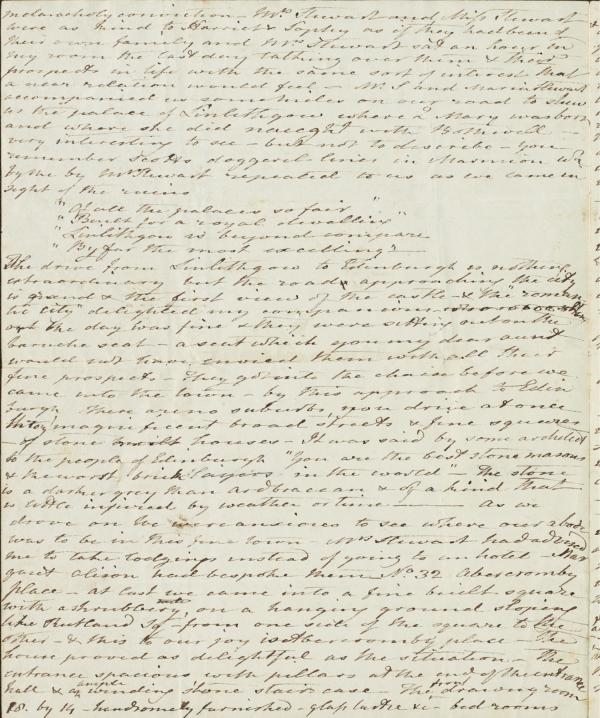 melancholy conviction - Mrs. Stewart and Miss Stewart
were as kind to Harriet & Sophy as if they had been of
their own family and Mrs Stewart sat an hour in
my room the last day talking over them & their
prospects in life with the same sort of interest that
a near relation would feel - Mr. S and Maria Stewart
accompanied us some miles on our road to shew
us the palace of Linlithgow where a Mary was born
and where she did naught with Bothwell -
very interesting to see - but not to describe - you
remember Scotts doggerel lines in Marmion
by the by Mr Stewart repeated to us as we came in
sight of the ruins
"Of all the palaces so fair"
"Built for a royal dwelling"
"Linlithgow is beyond compare
"By far the most excelling"
The drive from Linlithgow to Edinburgh is nothing
extraordinary but the road approaching the city
is grand & the first view of the castle & the "romantic
city" delighted my companions
the day was fine & they were sitting out on the
barouche seat - a seat which you my dear aunt
would not have envied them with all their
fine prospects - They got into the chaise before we
came into the town - by this approach to Edin
burgh there are no suburbs, you drive at once
thro magnificent broad streets & fine squares
- of stone built houses - It was said by some architect
to the people of Edinburgh "You are the best stone masons
& the worst brick layers in the world" - The stone
is a darker grey than Ardbraccan & of a kind that
is little injured by weather or time - As we
drove on we were anxious to see where our abode
was to be in this fine town Mrs Stewart had advised
me to take lodgings instead of going to an hotel - Mar
garet Alison had bespoke them No. 32 Abercromby
place - at last we came into a fine built square
with a shrubbery, on a hanging ground sloping
like Rutland Sq from one side of the square to the
other - & this to our joy is Abercromby place - The
house proved as delightful as the situation - The
entrance spacious with pillars at the end of the entrance
hall & ample winding stone stair case - The front drawing room
28. by 14 - handsomely furnished - glass lustre &c - bed rooms